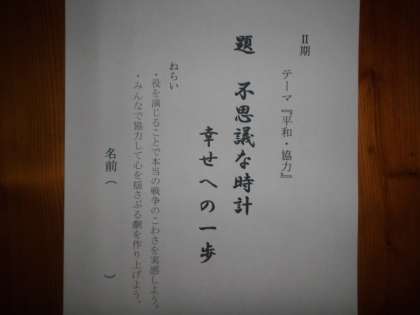 Ⅱ期
テーマ『平和・協力』
題 不思議な時計
幸せへの一歩
ねらい
・役を演じることで本当の戦争のこわさを実感しよう。
・みんなで協力して心を揺さぶる劇を作り上げよう。
名前（　　　）